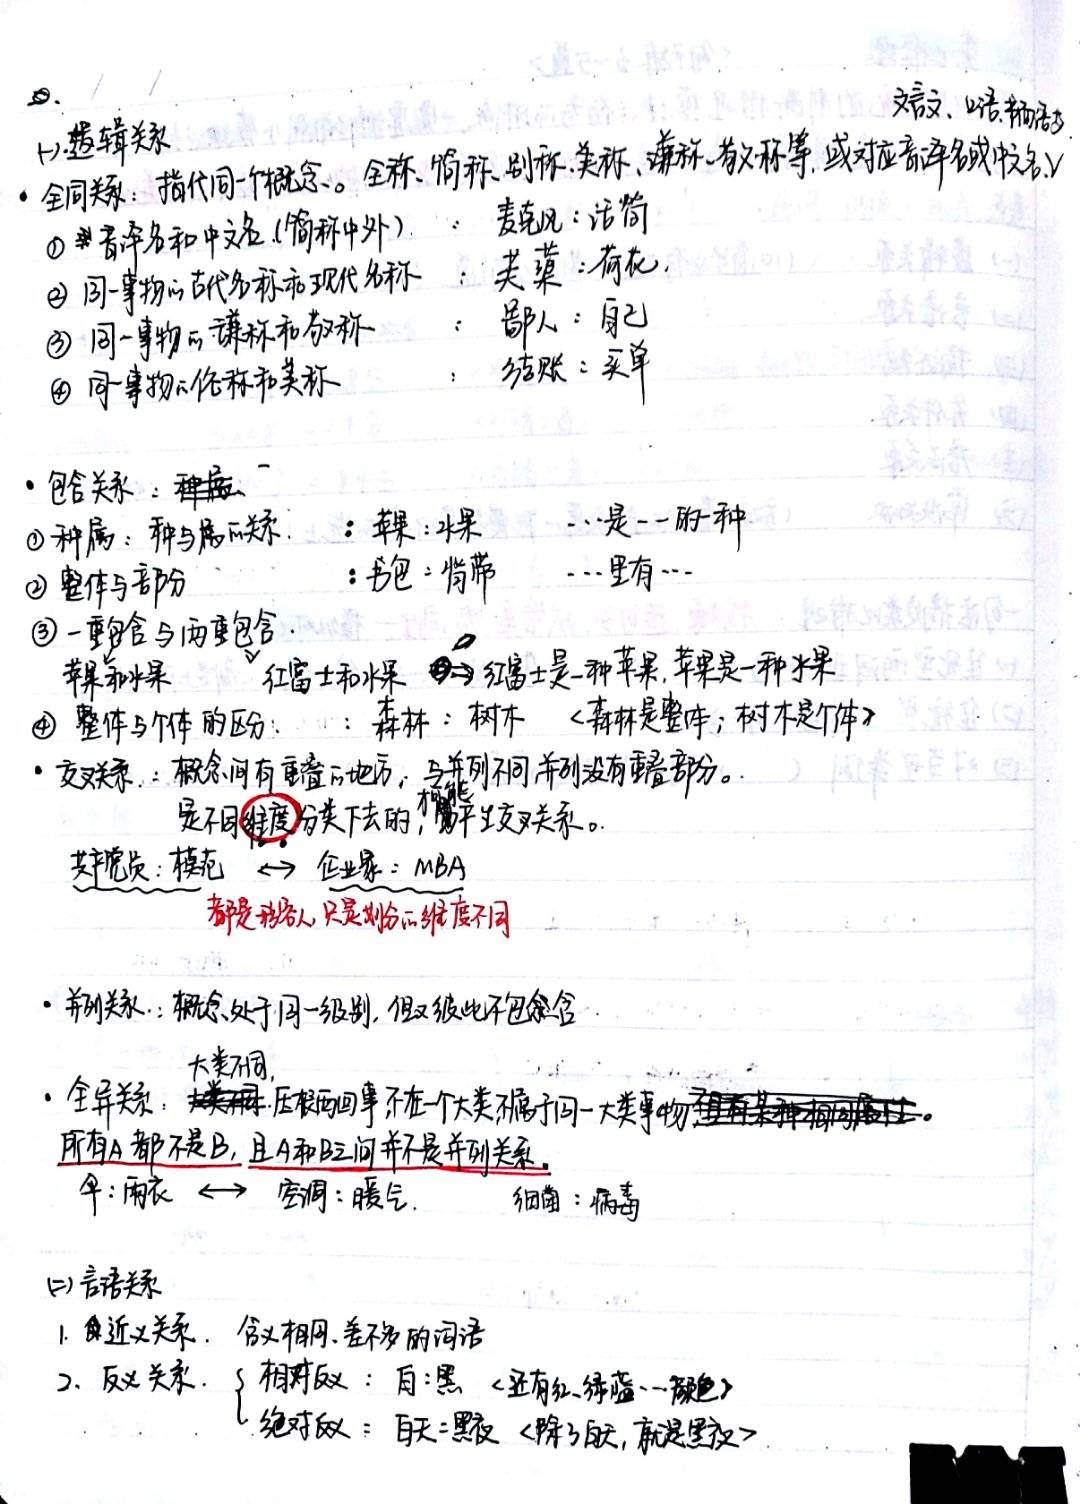 文言文、口语、书面语等
(一).逻辑关系
• 全同关系：指代同一个概念。全称、简称、别称、美称、谦称、敬称等，或对应音译名或中文名
① 音译名和中文名(简称中外)： 麦克风：话筒
② 同一事物的古代名称和现代名称： 芙蕖：荷花.
③ 同一事物的谦称和敬称： 鄙人：自己
④ 同一事物的俗称和美称： 结账：买单
• 包含关系：
① 种属：种与属的关系.： 苹果：水果 …是…的一种
② 整体与部分： 书包：背带 …里有…
③ 一重包含与两重包含.
苹果和水果 红富士和水果 ⇒ 红富士是一种苹果, 苹果是一种水果
④ 整体与个体的区分：： 森林：树木 <森林是整体；树木是个体>
• 交叉关系：概念间有重叠的地方，与并列不同,并列没有重叠部分。
是不同维度分类下去的，才能产生交叉关系。
共产党员：模范 ↔ 企业家：MBA
都是形容人,只是划分的维度不同
• 并列关系：概念处于同一级别，但又彼此不包含
大类不同,
• 全异关系：压根两回事,不在一个大类,不属于同一大类事物。
所有A都不是B，且A和B之间并不是并列关系。
伞：雨衣 ↔ 空调：暖气. 细菌：病毒
(二) 言语关系
1. 近义关系. 含义相同、差不多的词语
2. 反义关系. { 相对反义：白：黑 <还有红、绿、蓝…颜色>
绝对反义：白天：黑夜 <除了白天，就是黑夜>